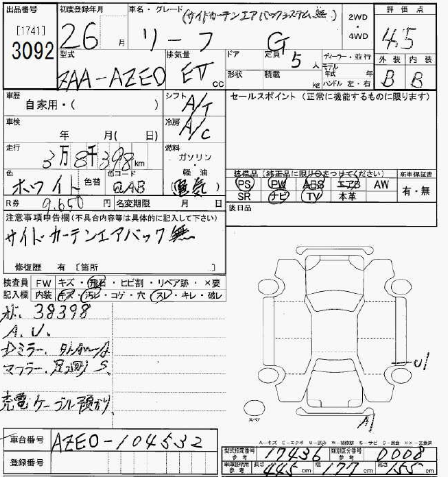 出品番号 [1741] 3092
初度登録年月 26年 月
車名・グレード リーフ G
(サイドカーテンエアバックシステム無)
2WD・4WD
評価点 4.5
外装 B 内装 B
型式 ZAA-AZE0
排気量 EV cc
ドア 形状
定員 5人
積載 kg
ディーラー・並行
モデル 年式 年
ハンドル 左・右
車歴 自家用・( )
シフト A/T
セールスポイント(正常に機能するものに限ります)
車検 年 月( )
冷房 A/C
走行 3万8千398km
燃料 ガソリン・軽油(電気)
色 ホワイト 色替 色コード QAB
装備品(純正品に限り〇つけてください)
PS PW ABS エアB AW
SR ナビ TV 本革
新車保証書 有・無
R券 9,650 名変期限 月 日
後日品
注意事項申告欄(不具合内容等は具体的に記入して下さい)
サイドカーテンエアバック無
修復歴 有 [箇所
検査員記入欄
FW キズ・飛石・ヒビ割・リペア跡・×要
内装 キズ・汚レ・コゲ・穴・スレ・キレ・破レ
38398
A.U.
マフラー、足廻り S
充電ケーブル預かり
U1
スペア
A1
車台番号 AZE0-104532
登録番号
型式指定番号 参考 17436
類別区分番号 参考 0008
長さ 445cm 幅 177cm 高さ 155cm